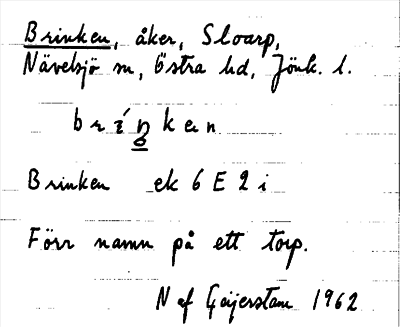 Brinken, åker, Sloarp,
Nävelsjö sn, Östra hd, Jönk. l.
bríŋ̥kən
Brinken ek 6 E 2 i
Förr namn på ett torp.
N af Geijerstam 1962